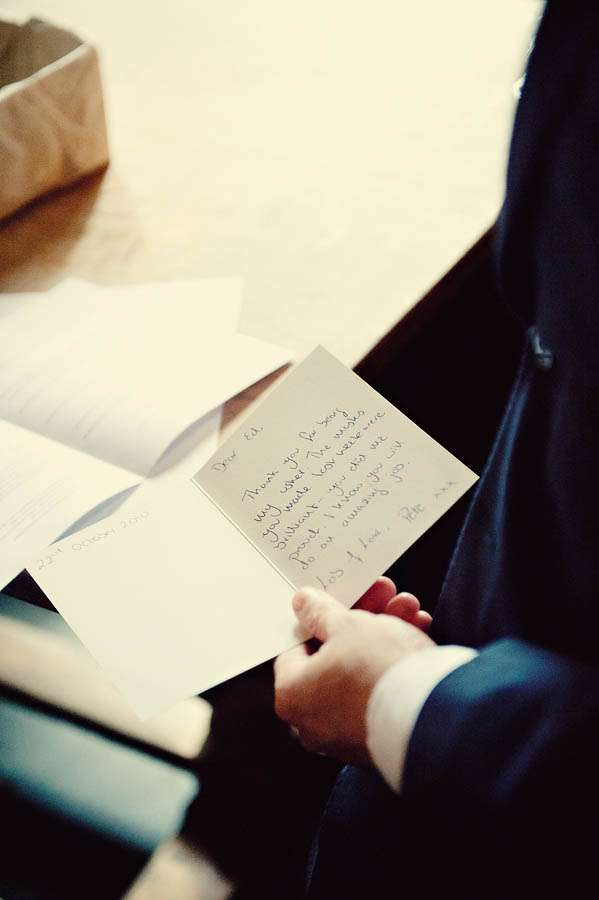 22nd October 2010
Dear Ed.
Thank you for being
my usher. The masks
you made last week were
brilliant - you did me
proud. I know you will
do an amazing job.
Lots of Love. Pete xxx